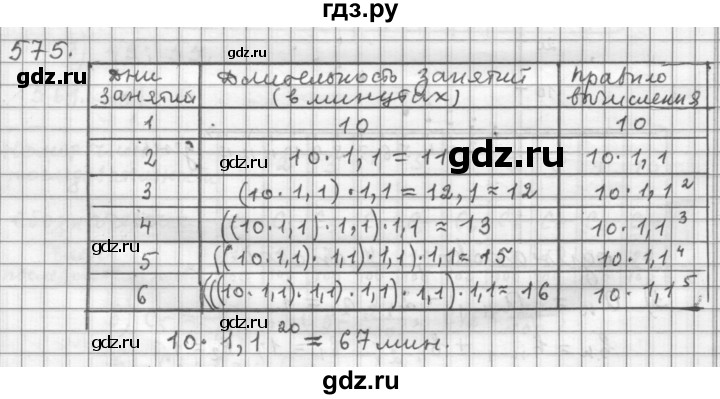 гдз.ру
575.
gdz.ru
Дни занятий | Длительность занятий (в минутах) | Правило вычисления
1 | 10 | 10
2 | 10·1,1 = 11 | 10·1,1
3 | (10·1,1)·1,1 = 12,1 ≈ 12 | 10·1,1²
4 | ((10·1,1)·1,1)·1,1 ≈ 13 | 10·1,1³
5 | ((10·1,1)·1,1)·1,1)·1,1 ≈ 15 | 10·1,1⁴
6 | (((10·1,1)·1,1)·1,1)·1,1)·1,1 ≈ 16 | 10·1,1⁵
10·1,1²⁰ ≈ 67 мин.
gdz.ru
gdz.ru
gdz.ru
gdz.ru
gdz.ru
gdz.ru
gdz.ru
gdz.ru
gdz.ru